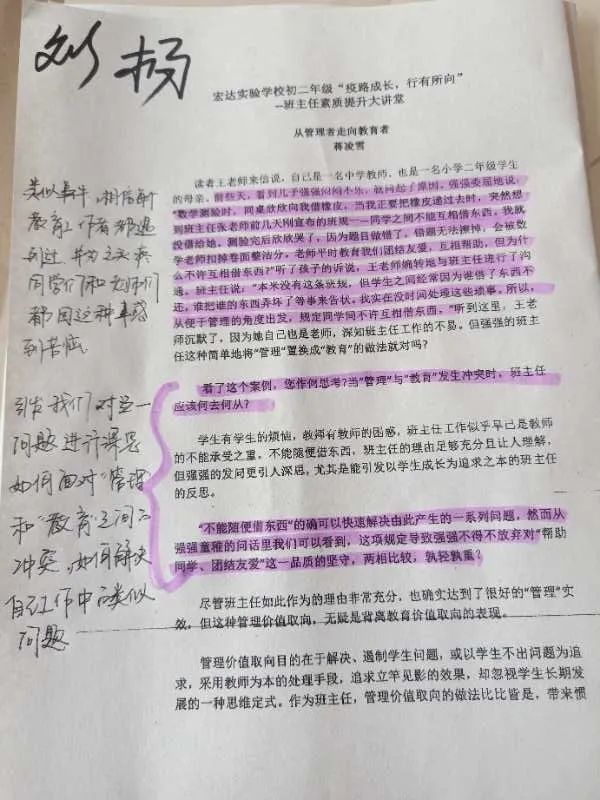 刘扬
宏达实验学校初二年级“疫路成长，行有所向”
--班主任素质提升大讲堂
从管理者走向教育者
蒋凌雪
读者王老师来信说，自己是一名中学教师，也是一名小学二年级学生
的母亲。前些天，看到儿子强强闷闷不乐，就问起了原因，强强委屈地说，
“数学测验时，同桌欣欣向我借橡皮，当我正要把橡皮递过去时，突然想
到班主任张老师前几天刚宣布的班规——同学之间不能互相借东西，我就
没借给她。测验完后欣欣哭了，因为题目做错了，错题无法擦掉，会被数
学老师扣掉卷面整洁分。老师平时教育我们团结友爱，互相帮助，但为什
么不许互相借东西?”听了孩子的诉说，王老师婉转地与班主任进行了沟
通。班主任说：“本来没有这条班规，但学生之间经常因为谁借了东西不
还，谁把谁的东西弄坏了等事来告状，我实在没时间处理这些琐事。所以，
从便于管理的角度出发，规定同学间不许互相借东西。”听到这里，王老
师沉默了，因为她自己也是老师，深知班主任工作的不易。但强强的班主
任这种简单地将“管理”置换成“教育”的做法就对吗?
看了这个案例，您作何思考?当“管理”与“教育”发生冲突时，班主任
应该何去何从?
学生有学生的烦恼，教师有教师的困惑，班主任工作似乎早已是教师
的不能承受之重。不能随便借东西，班主任的理由足够充分且让人理解，
但强强的发问更引人深思，尤其是能引发以学生成长为追求之本的班主任
的反思。
“不能随便借东西”的确可以快速解决由此产生的一系列问题，然而从
强强童稚的问话里我们可以看到，这项规定导致强强不得不放弃对“帮助
同学、团结友爱”这一品质的坚守，两相比较，孰轻孰重?
尽管班主任如此作为的理由非常充分，也确实达到了很好的“管理”实
效，但这种管理价值取向，无疑是背离教育价值取向的表现。
管理价值取向目的在于解决、遏制学生问题，或以学生不出问题为追
求，采用教师为本的处理手段，追求立竿见影的效果，却忽视学生长期发
展的一种思维定式。作为班主任，管理价值取向的做法比比皆是，带来惯
类似事件，相信每个
教育工作者都遇
到过
同学们和老师们
都因这种事感
到苦恼
引发我们对这一
问题进行深思
如何面对“管理”
和“教育”之间的
冲突，如何解决
自己工作中的类似
问题